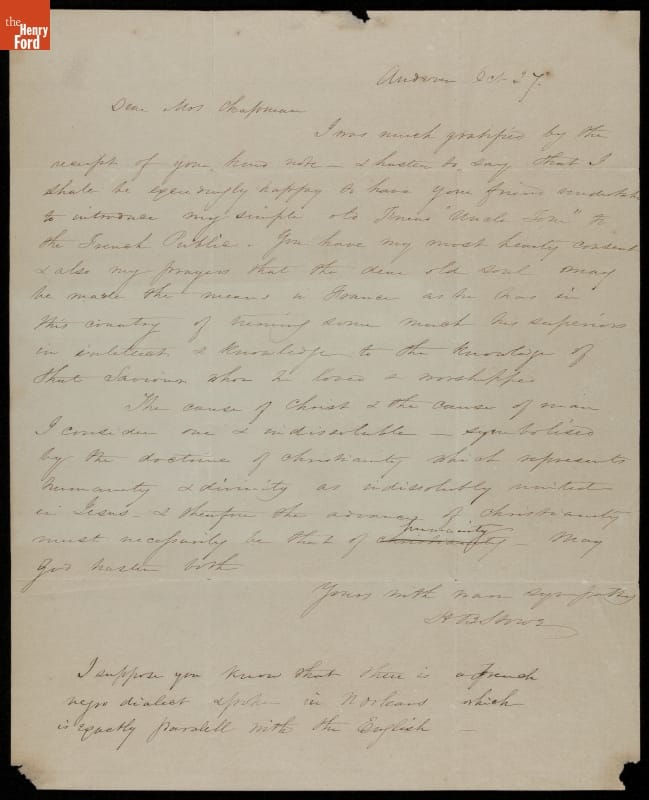 the
Henry
Ford
Andover Oct 27.
Dear Mrs Chapman
I was much gratified by the
receipt of your kind note – & hasten to say that I
shall be exceedingly happy to have your friend undertake
to introduce my simple old friend "Uncle Tom" to
the French Public. You have my most hearty consent
& also my prayers that the dear old soul may
be made the means in France as he has in
this country of turning some much his superiors
in intellect & knowledge to the knowledge of
that Saviour whom he loved & worshipped
The cause of Christ & the cause of man
I consider one & indissoluble – symbolised
by the doctrine of Christianity which represents
humanity & divinity as indissolubly united
in Jesus – & therefore the advance of Christianity
must necessarily be that of christianity humanity – May
God hasten both
Yours with warm sympathy
H B Stowe
I suppose you know that there is a French
negro dialect spoken in N Orleans which
is exactly paralell with the English –